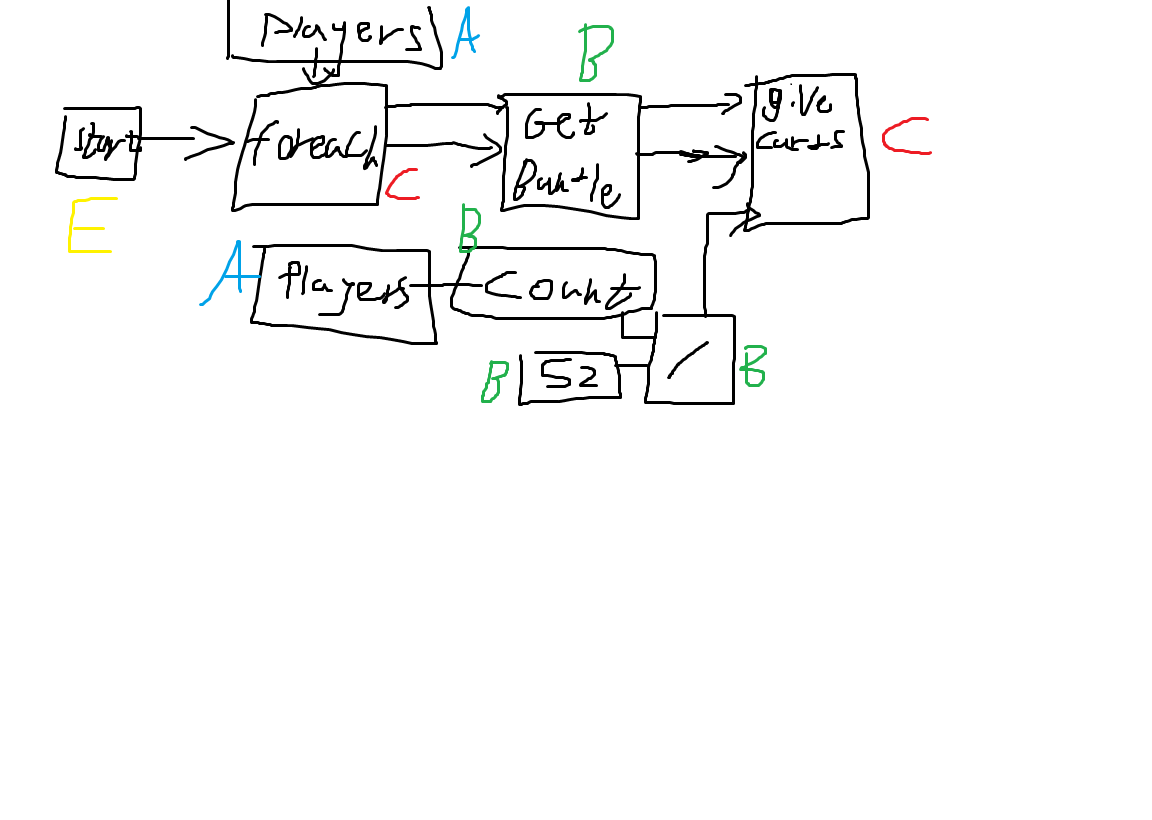 Players A
B
Start
foreach
Get
Buntle
give
carts
C
C
E
B
A
Players
Count
B
52
/
B